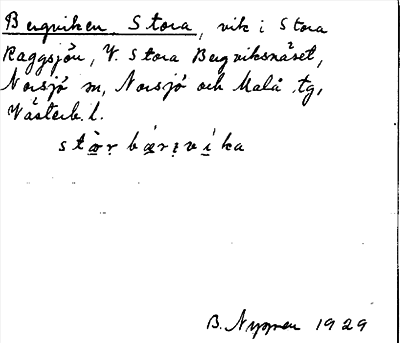 Bergviken Stora, vik i Stora
Raggsjön, V. Stora Bergviksnäset,
Norsjö sn, Norsjö och Malå tg,
Västerb. l.
stɑ̀r bær̨víka
B. Nygren 1929